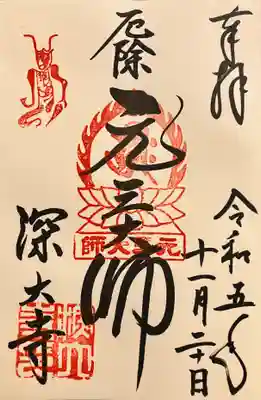 奉拝
令和五年
十一月二十日
厄除
元三大師
元三大師
深大寺